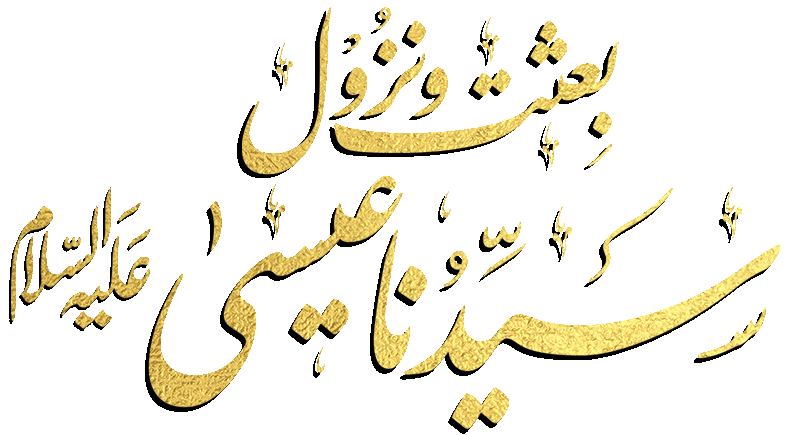 بِعثت و نُزُوْل
سَیِّدُنا عیسیٰ عَلَیہِ السَّلَام